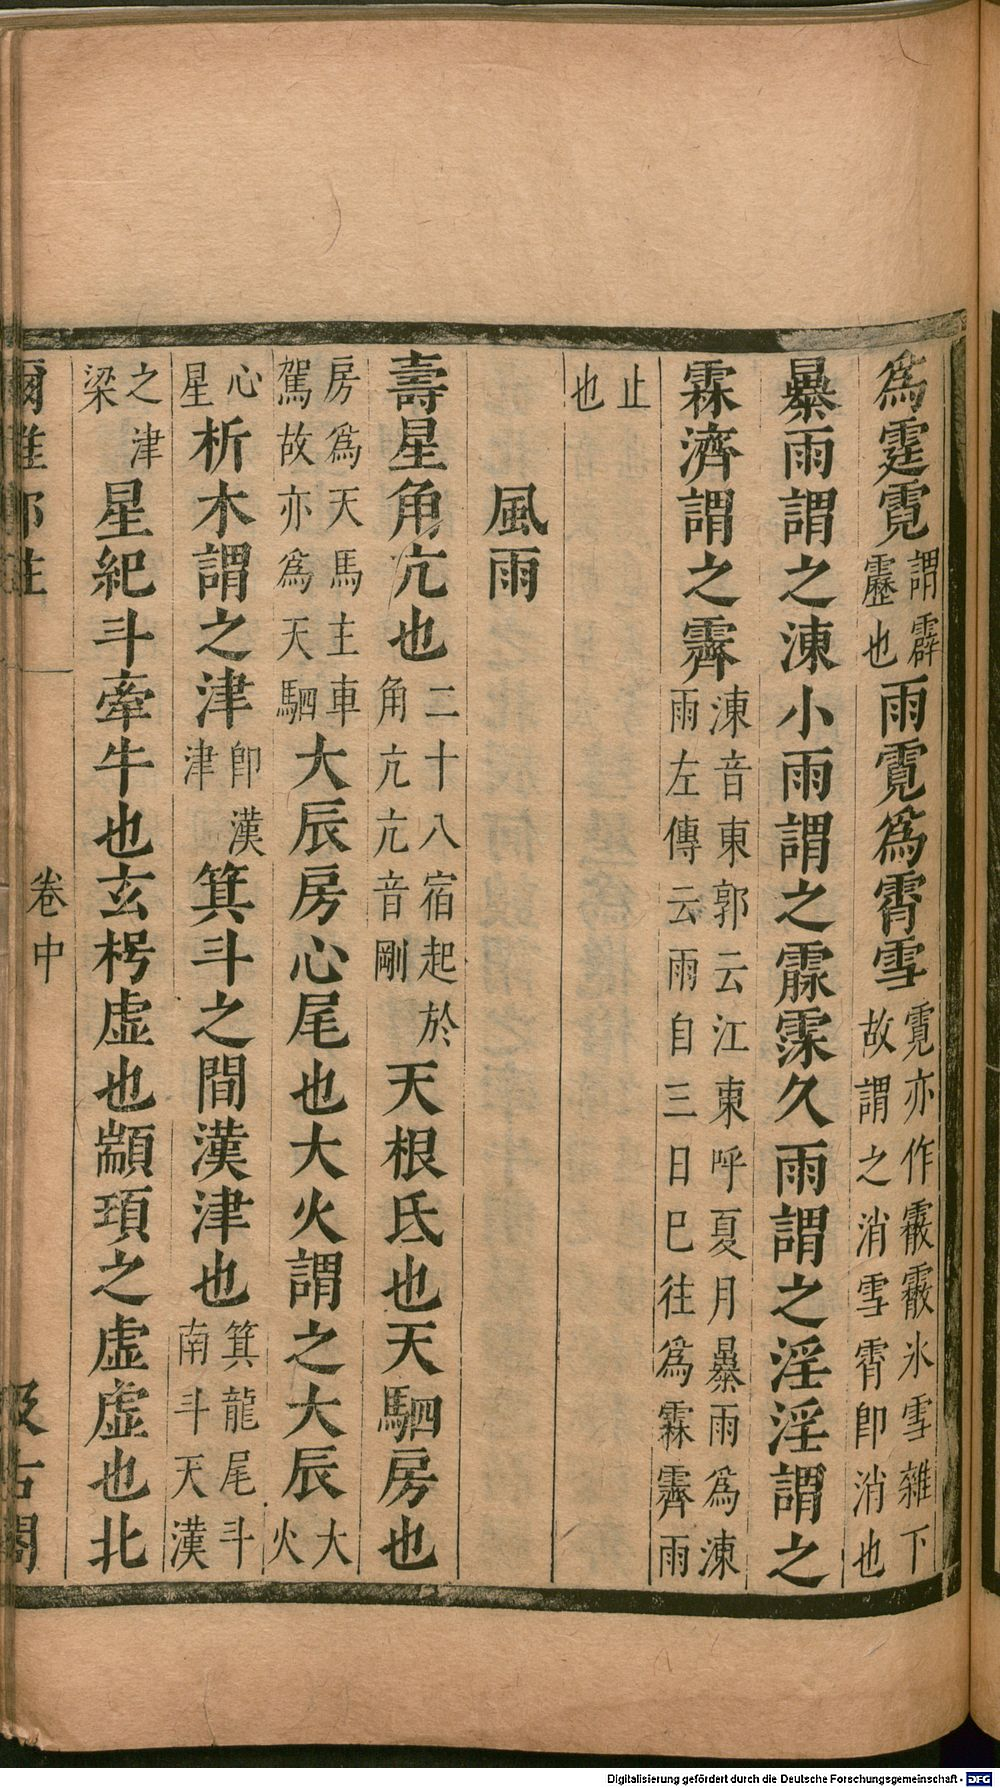 爲霆霓謂霹靂也雨霓爲霄雪霓亦作霰霰氷雪雜下故謂之消雪霄卽消也
暴雨謂之涷小雨謂之霡霂久雨謂之淫淫謂之
霖濟謂之霽涷音東郭云江東呼夏月暴雨爲涷雨左傳云雨自三日巳往爲霖霽雨
止也
風雨
壽星角亢也二十八宿起於角亢亢音剛天根氐也天駟房也
房爲天馬主車駕故亦爲天駟大辰房心尾也大火謂之大辰大火
心星析木謂之津卽漢津箕斗之間漢津也箕龍尾斗南斗天漢
之津梁星紀斗牽牛也玄枵虛也顓頊之虛虛也北
爾雅鄭註
卷中
汲古閣
Digitalisierung gefördert durch die Deutsche Forschungsgemeinschaft - DFG